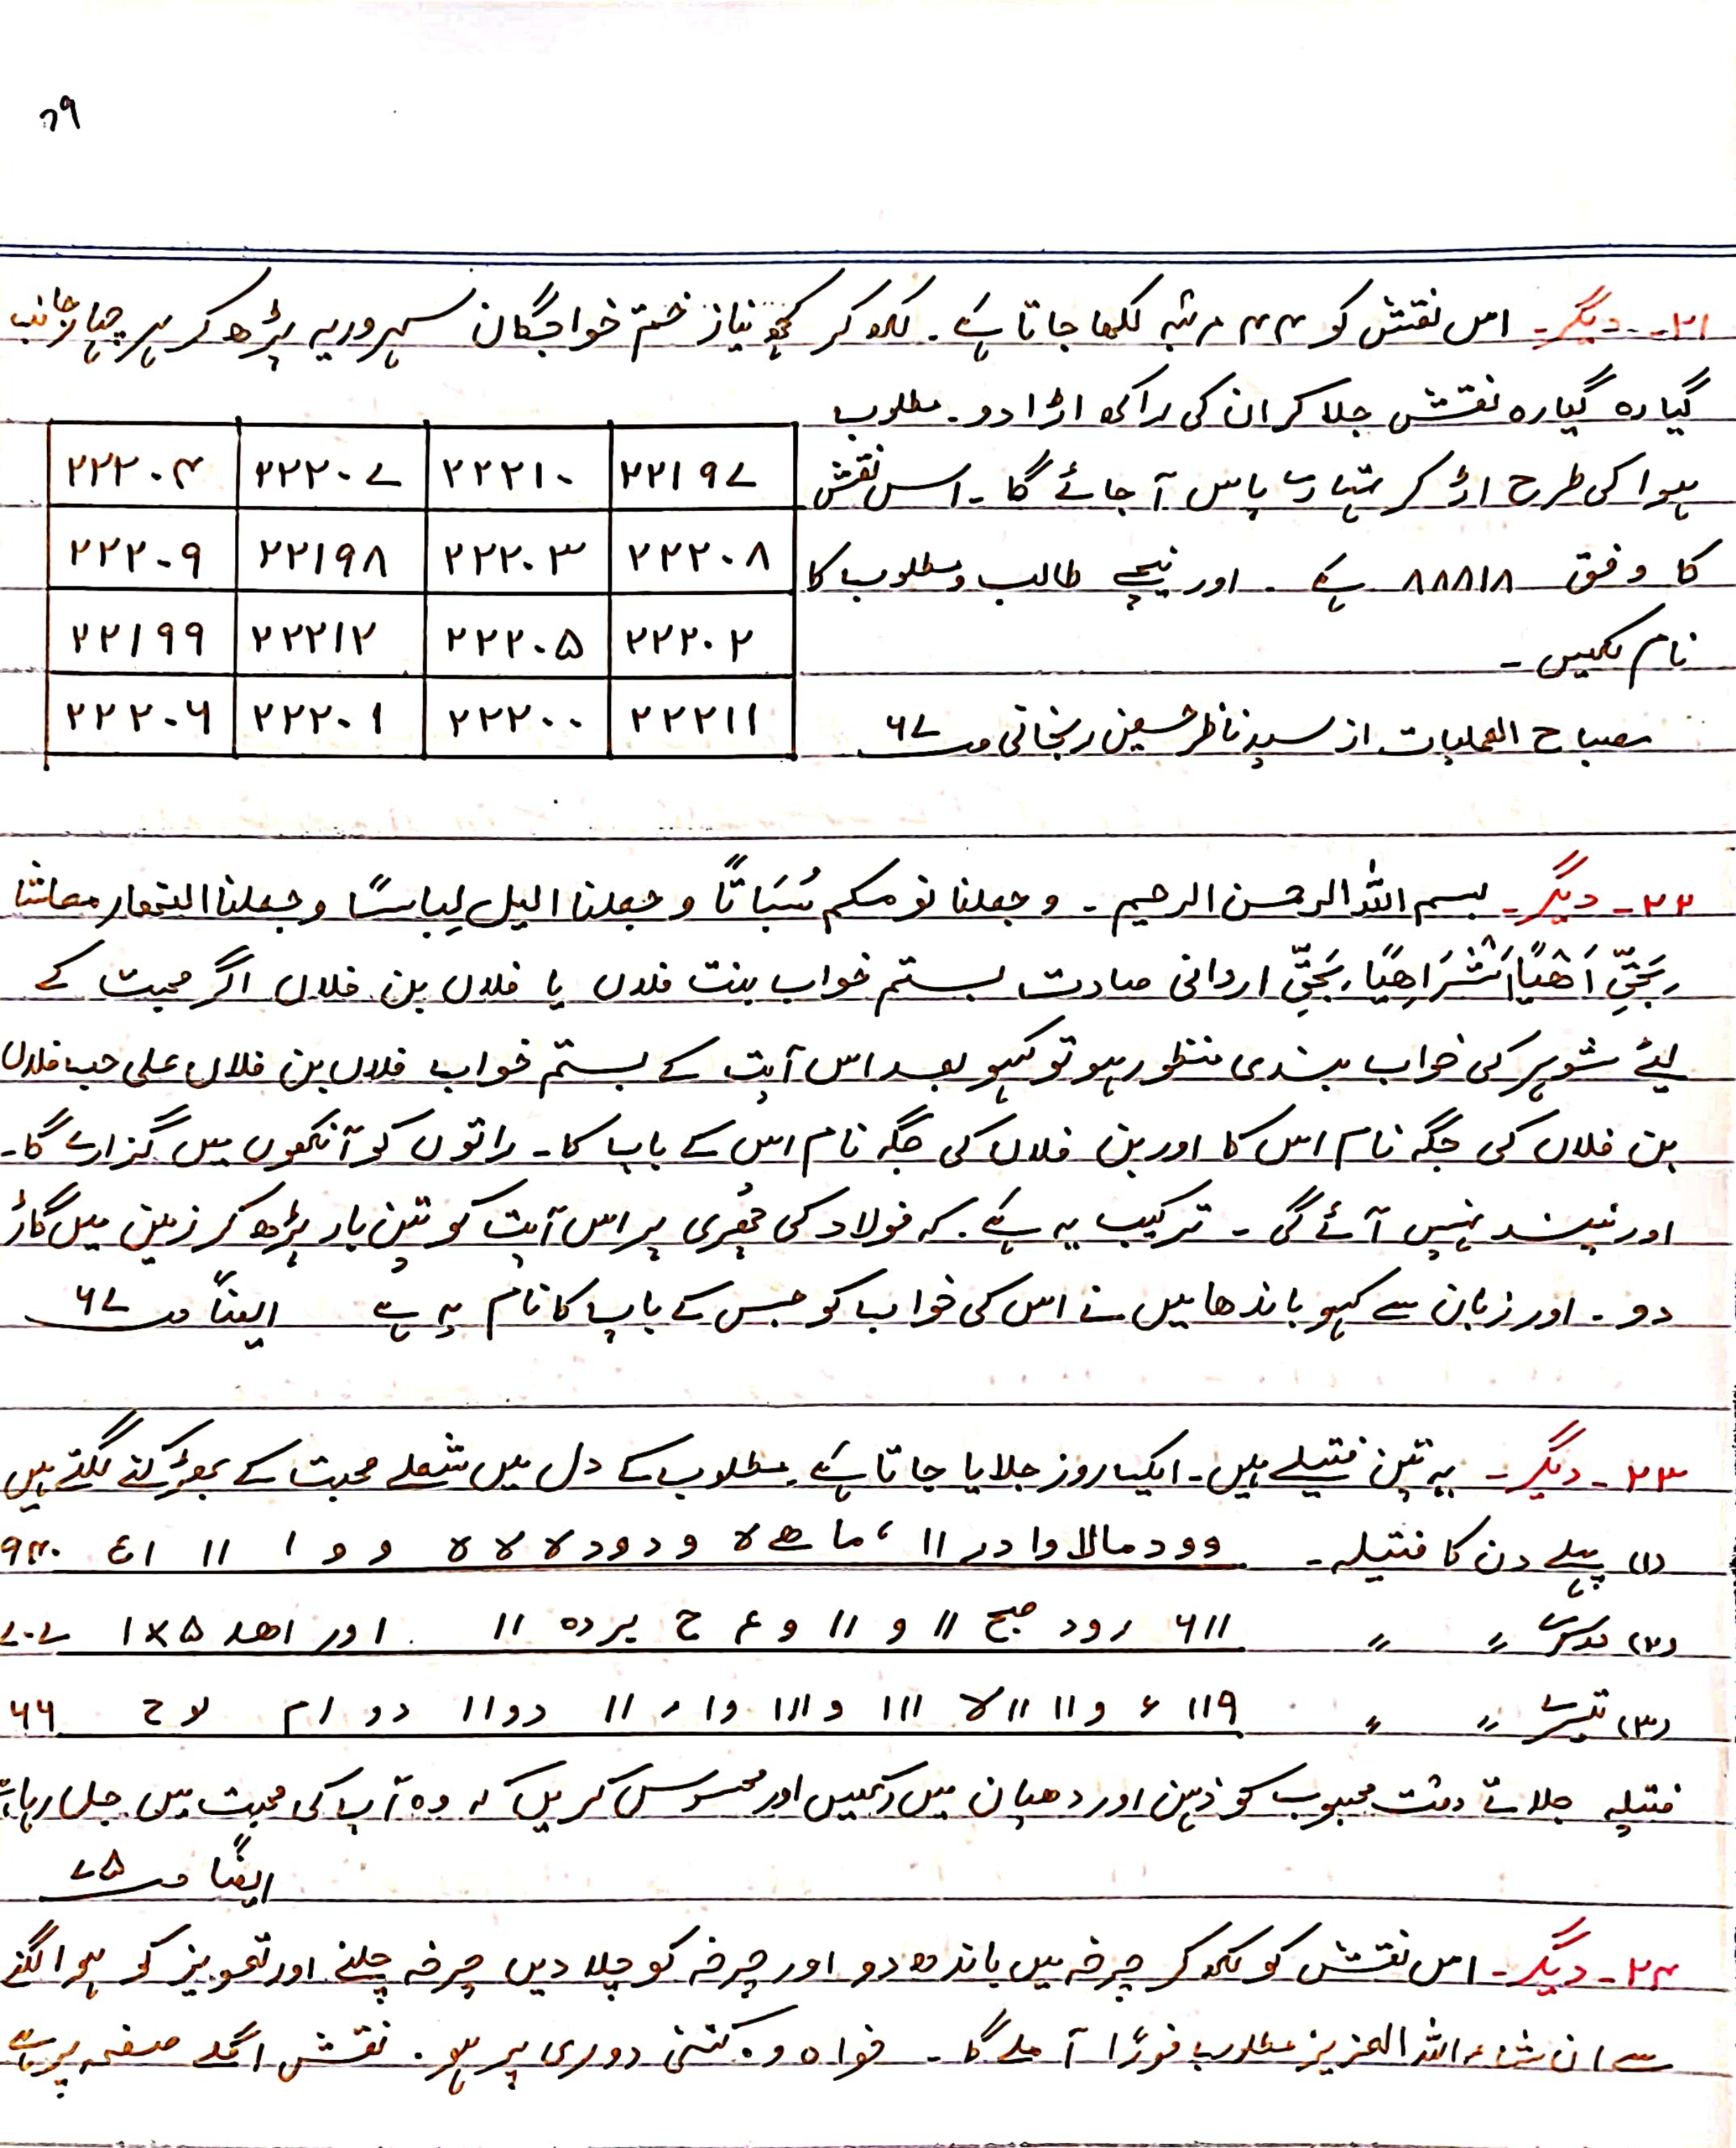 ۷۹
۲۱۔ دیگر۔ اس نقش کو ۴۴ مرتبہ لکھا جاتا ہے۔ لکھ کر کچھ نیاز ختم خواجگان سہروردیہ پڑھ کر ہر چہار جانب
گیارہ گیارہ نقش جلا کر ان کی راکھ اڑا دو۔ مطلوب
ہوا کی طرح اڑ کر تمہارے پاس آ جائے گا۔ اس نقش
کا وفق ۸۸۸۱۸ ہے۔ اور نیچے طالب و مطلوب کا
نام لکھیں۔
مصباح العملیات از سید ناظر حسین زنجانی ص ۶۷
۲۲۱۹۷ ۲۲۲۱۰ ۲۲۲۰۷ ۲۲۲۰۴
۲۲۲۰۸ ۲۲۲۰۳ ۲۲۱۹۸ ۲۲۲۰۹
۲۲۲۰۲ ۲۲۲۰۵ ۲۲۲۱۲ ۲۲۱۹۹
۲۲۲۱۱ ۲۲۲۰۰ ۲۲۲۰۱ ۲۲۲۰۶
۲۲۔ دیگر۔ بسم اللہ الرحمن الرحیم۔ وجعلنا نومکم سُبَاتًا وجعلنا الیل لِباسًا وجعلنا النھار معاشا
بَحَقِّ اَھْیًا اَشْرَاھِیًا بَحَقِّ اردانی صادت بستم خواب بنت فلاں یا فلاں بن فلاں اگر محبت کے
لیے شوہر کی خواب بندی منظور ہو تو کہو بعد اس آیت کے بستم خواب فلاں بن فلاں علی حب فلاں
بن فلاں کی جگہ نام اس کا اور بن فلاں کی جگہ نام اس کے باپ کا۔ راتوں کو آنکھوں میں گزارے گا۔
اور نیند نہیں آئے گی۔ ترکیب یہ ہے۔ کہ فولاد کی چھری پر اس آیت کو تین بار پڑھ کر زمین میں گاڑ
دو۔ اور زبان سے کہو باندھا میں نے اس کی خواب کو جس کے باپ کا نام یہ ہے ایضاً ص ۶۷
۲۳۔ دیگر۔ یہ تین فتیلے ہیں۔ ایک روز جلایا جاتا ہے۔ مطلوب کے دل میں شعلے محبت کے بھڑکنے لگتے ہیں
(۱) پہلے دن کا فتیلہ۔ وود مالا وا در ۱۱ ، ما ھے لا ودود لا لا لا و و ا ۱۱ اع ۹۴۰
(۲) دوسرے 〃 〃 ۶۱۱ رود صبح ۱۱ و ۱۱ و ع ح یردہ ۱۱ اور اھد ۵×۱ ۷۰۷
(۳) تیسرے 〃 〃 ۱۱۹ ء و۱۱ ۱۱لا ۱۱۱ و۱۱۱ وا ر ۱۱ دو۱۱ دو ام لا ح ۶۶
فتیلہ جلاتے وقت محبوب کو ذہن اور دھیان میں رکھیں اور محسوس کریں کہ وہ آپ کی محبت میں جل رہا ہے
ایضاً ص ۷۵
۲۴۔ دیگر۔ اس نقش کو لکھ کر چرخہ میں باندھ دو اور چرخہ کو چلا دیں چرخہ چلنے اور تعویز کو ہوا لگنے
سے ان شاء اللہ العزیز مطلوب فوراً آ ملے گا۔ خواہ وہ کتنی دوری پر ہو۔ نقش اگلے صفحہ پر ہے